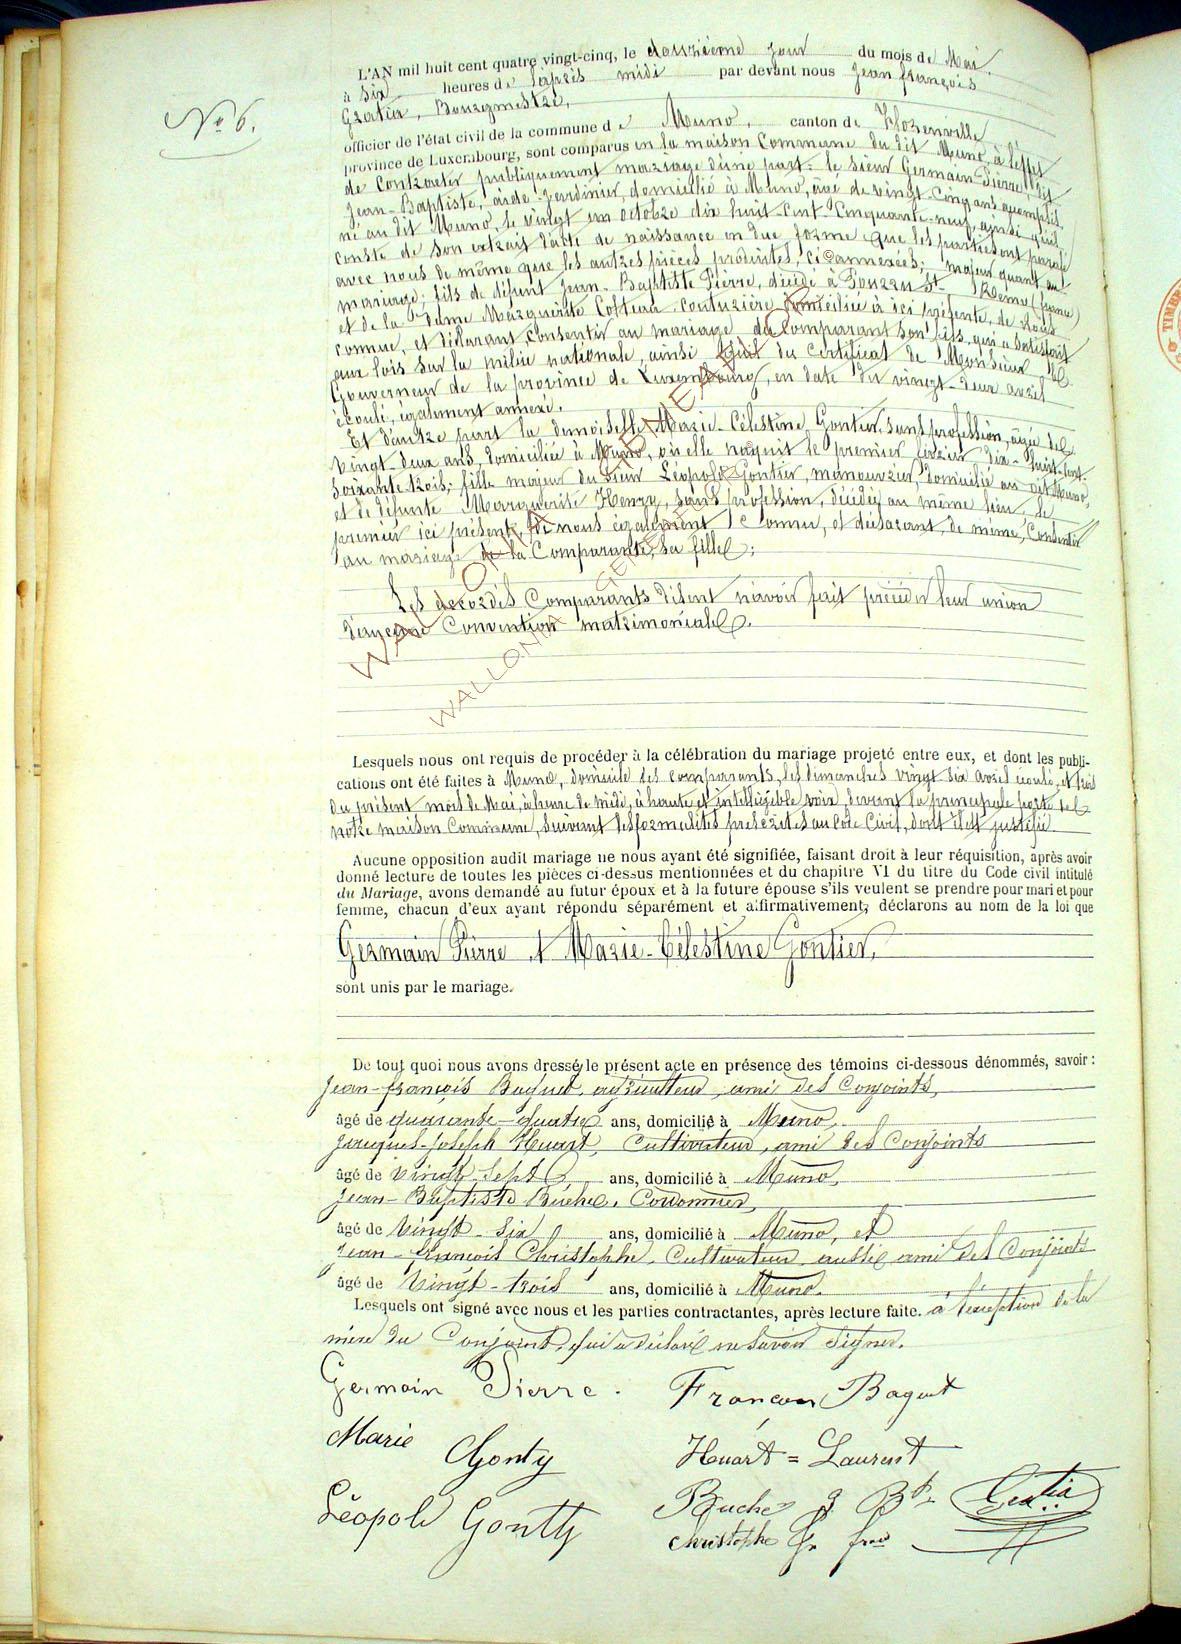 No 6.
L'AN mil huit cent quatre vingt-cinq, le douzième jour du mois de Mai.
à six heures de l'après midi par devant nous Jean françois
Gratia, Bourgmestre,
officier de l'état civil de la commune de Muno, canton de Florenville
province de Luxembourg, sont comparus en la maison Commune du dit Muno, à l'effet
de Contracter publiquement mariage d'une part: le sieur Germain Pierre, dit
Jean-Baptiste, aide-jardinier, domicilié à Muno, âgé de vingt-cinq ans accomplis
né au dit Muno, le vingt un octobre dix huit-cent-cinquante-neuf, ainsi qu'il
conste de son extrait d'acte de naissance en due forme que les parties ont paraphé
avec nous de même que les autres pièces produites, ci annexées; majeur quant au
mariage; fils de défunt Jean-Baptiste Pierre, décédé à Pouzzu St-Remy (france)
et de la Dame Marguerite Cotteau couturière domiciliée à ici présente, de nous
connue, et déclarant consentir au mariage du Comparant son fils, qui a satisfait
aux lois sur la milice nationale, ainsi qu'il du certificat de Monsieur le
Gouverneur de la province de Luxembourg, en date du vingt-deux avril
écoulé, également annexé.
Et d'autre part la demoiselle Marie-Célestine Gontier, sans profession, âgée de
vingt-deux ans, domiciliée à Muno, où elle naquit le premier février dix-huit-cent-
soixante trois; fille majeur du sieur Léopold Gontier, manouvrier, domicilié au dit Muno,
et de défunte Marguerite Henry, sans profession, décédée au même lieu, le
premier ici présent, de nous également connu, et déclarant, de même, Consentir
au mariage de la Comparante, sa fille;
Les accordés Comparants disent n'avoir fait précéder leur union
d'aucune Convention matrimoniale.
Lesquels nous ont requis de procéder à la célébration du mariage projeté entre eux, et dont les publi-
cations ont été faites à Muno, domicile des comparants, les dimanches vingt six avril écoulé, et trois
du présent mois de Mai, à heure de midi, à haute et intelligible voix, devant la principale porte de
notre maison Commune, suivant les formalités prescrites au Code Civil, dont il est justifié.
Aucune opposition audit mariage ne nous ayant été signifiée, faisant droit à leur réquisition, après avoir
donné lecture de toutes les pièces ci-dessus mentionnées et du chapitre VI du titre du Code civil intitulé
du Mariage, avons demandé au futur époux et à la future épouse s'ils veulent se prendre pour mari et pour
femme, chacun d'eux ayant répondu séparément et affirmativement, déclarons au nom de la loi que
Germain Pierre et Marie-Célestine Gontier,
sont unis par le mariage.
De tout quoi nous avons dressé le présent acte en présence des témoins ci-dessous dénommés, savoir :
Jean-françois Baquet, agriculteur, ami des Conjoints,
âgé de quarante-quatre ans, domicilié à Muno,
Jacques-Joseph Huart, Cultivateur, ami des Conjoints
âgé de vingt-sept ans, domicilié à Muno,
Jean-Baptiste Buche, Cordonnier,
âgé de Vingt-six ans, domicilié à Muno, et
Jean-françois Christophe, Cultivateur, aussi ami des Conjoints
âgé de Vingt-trois ans, domicilié à Muno.
Lesquels ont signé avec nous et les parties contractantes, après lecture faite. à l'exception de la
mère du Conjoint, qui a déclaré ne savoir signer.
Germain Pierre. Françon Baquet
Marie Gonty Huart = Laurent
Léopold Gontty Buche J Bte Gratia
Christophe Jn frois
WALLONIA
TIMBRE